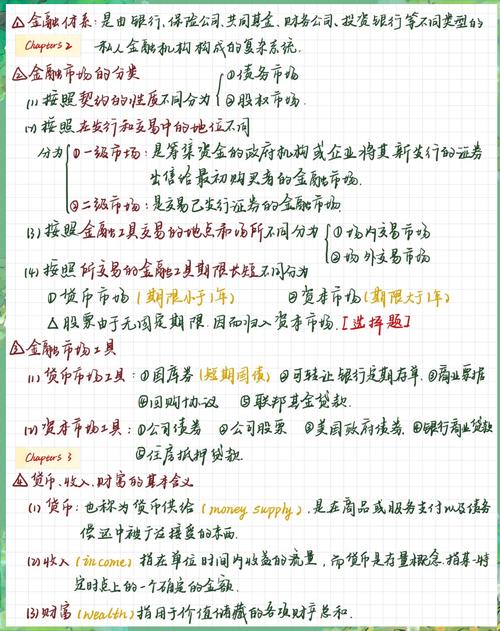 △金融体系:是由银行、保险公司、共同基金、财务公司、投资银行等不同类型的
Chapters 2
私人金融机构构成的复杂系统.
△金融市场的分类
(1)按照契约的性质不同分为 ①债务市场
②股权市场.
(2)按照在发行和交易中的地位不同
分为 ①一级市场:是筹集资金的政府机构或企业将其新发行的证券
出售给最初购买者的金融市场.
②二级市场:是交易已发行证券的金融市场.
(3)按照金融工具交易的地点和场所不同分为 ①场内交易市场
②场外交易市场
(4)按照所交易的金融工具期限长短不同分为
①货币市场(期限小于1年) ②资本市场(期限大于1年)
△股票由于无固定期限.因而归入资本市场.[选择题]
③金融市场工具
(1)货币市场工具:①国库券(短期国债) ②可转让银行定期存单.③商业票据
④回购协议 ⑤联邦基金贷款.
(2)资本市场工具:①公司债券 ②公司股票 ③美国政府债券.④银行商业贷款
⑤住房抵押贷款.
Chapters 3
△货币、收入、财富的基本含义
(1)货币:也称为货币供给(money supply),是在商品或服务支付以及债务
偿还中被广泛接受的东西.
(2)收入(income)指在单位时间内收益的流量,而货币是存量概念.指某一特
定时点上的一个确定的金额.
(3)财富(wealth)指用于价值储藏的各项财产总和.